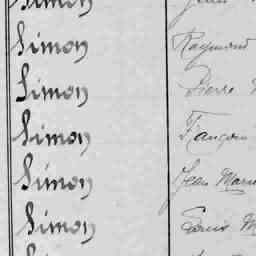 Simon
Simon Raymond
Simon Pierre
Simon François
Simon Jean Marie
Simon Louis M